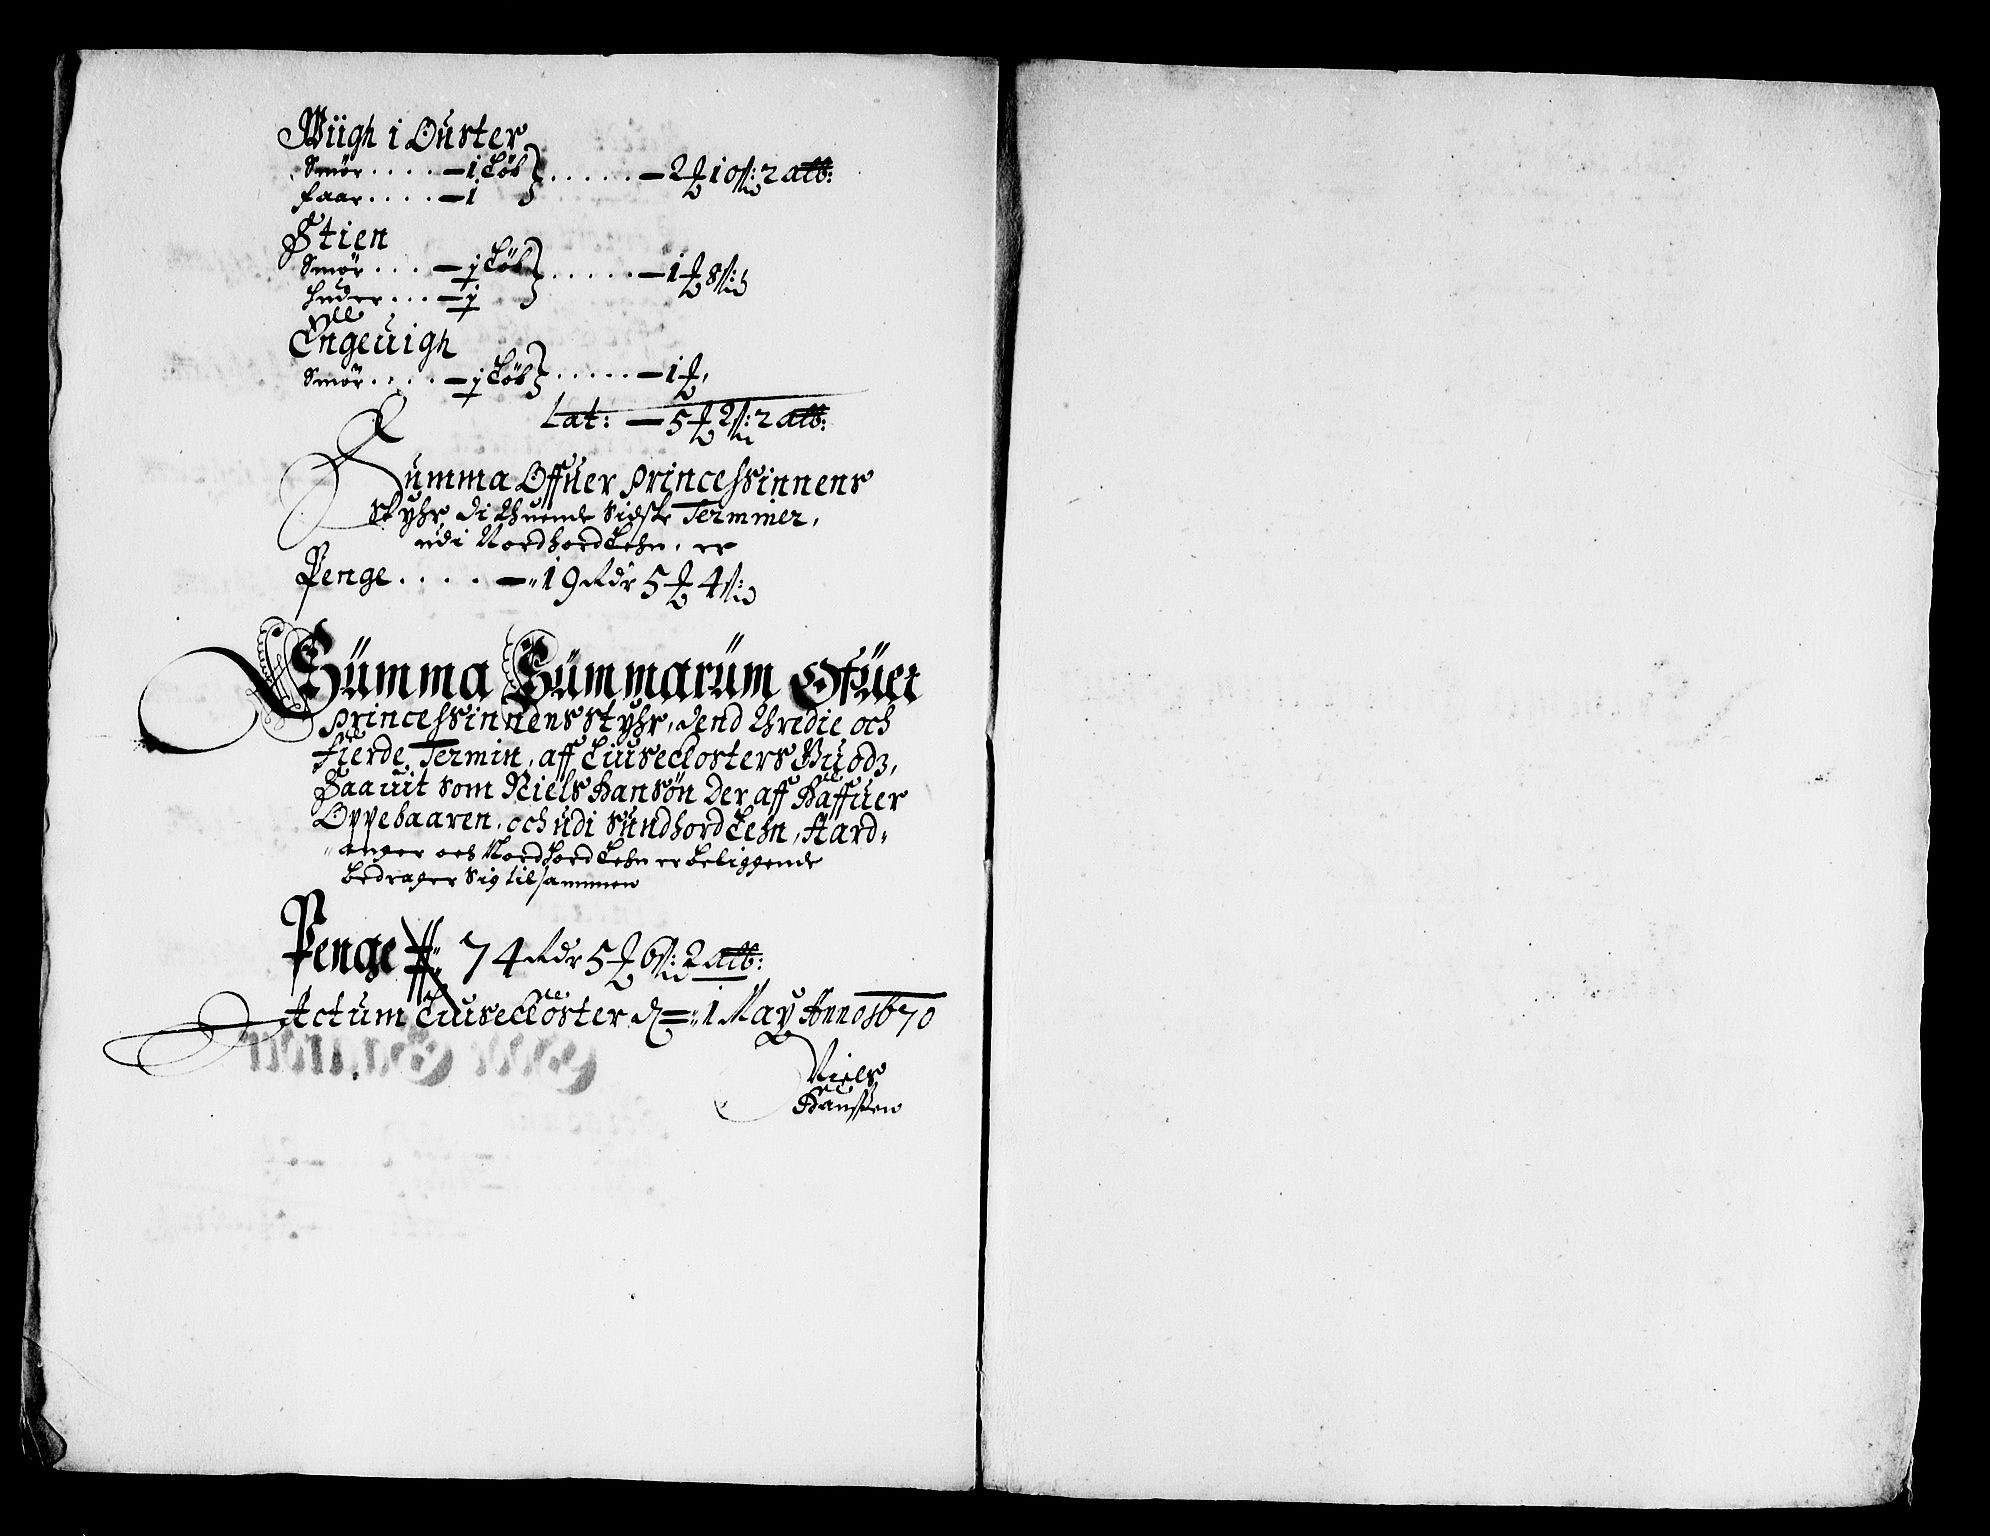 Wiigh i Ouster
Smör .... — 1 Löb } ..... — 2 ₰ 10 ß: 2 alb:
Faar .... — 1
Stien
Smör .... — j Löb } ..... — 1 ₰ 8 ß:
Huder ... — j
Engeuigh
Smör .... — j Löb } ..... — 1 ₰,
Lat: — 5 ₰ 2 ß: 2 alb:
Summa Offuer Princessinnens
Styhr, di thuende Sidste Terminer,
udi Nordhordlehn, er
Penge .... — 19 Rdr 5 ₰ 4 ß:
Summa Summarum Ofuer
Princessinnens Styhr, dend thredie och
fierde Termin, aff Liuseclosters Guodz,
Saauit som Niels Hansön der aff haffuer
Oppebaaren, och udi Sundhordlehn, Hard-
anger och Nordhordlehn er beliggende
bedrager Sig tilsammen
Penge 74 Rdr 5 ₰ 6 ß: 2 alb:
Actum Liusecloster d = 1 May Anno 1670
Niels
Hanssen